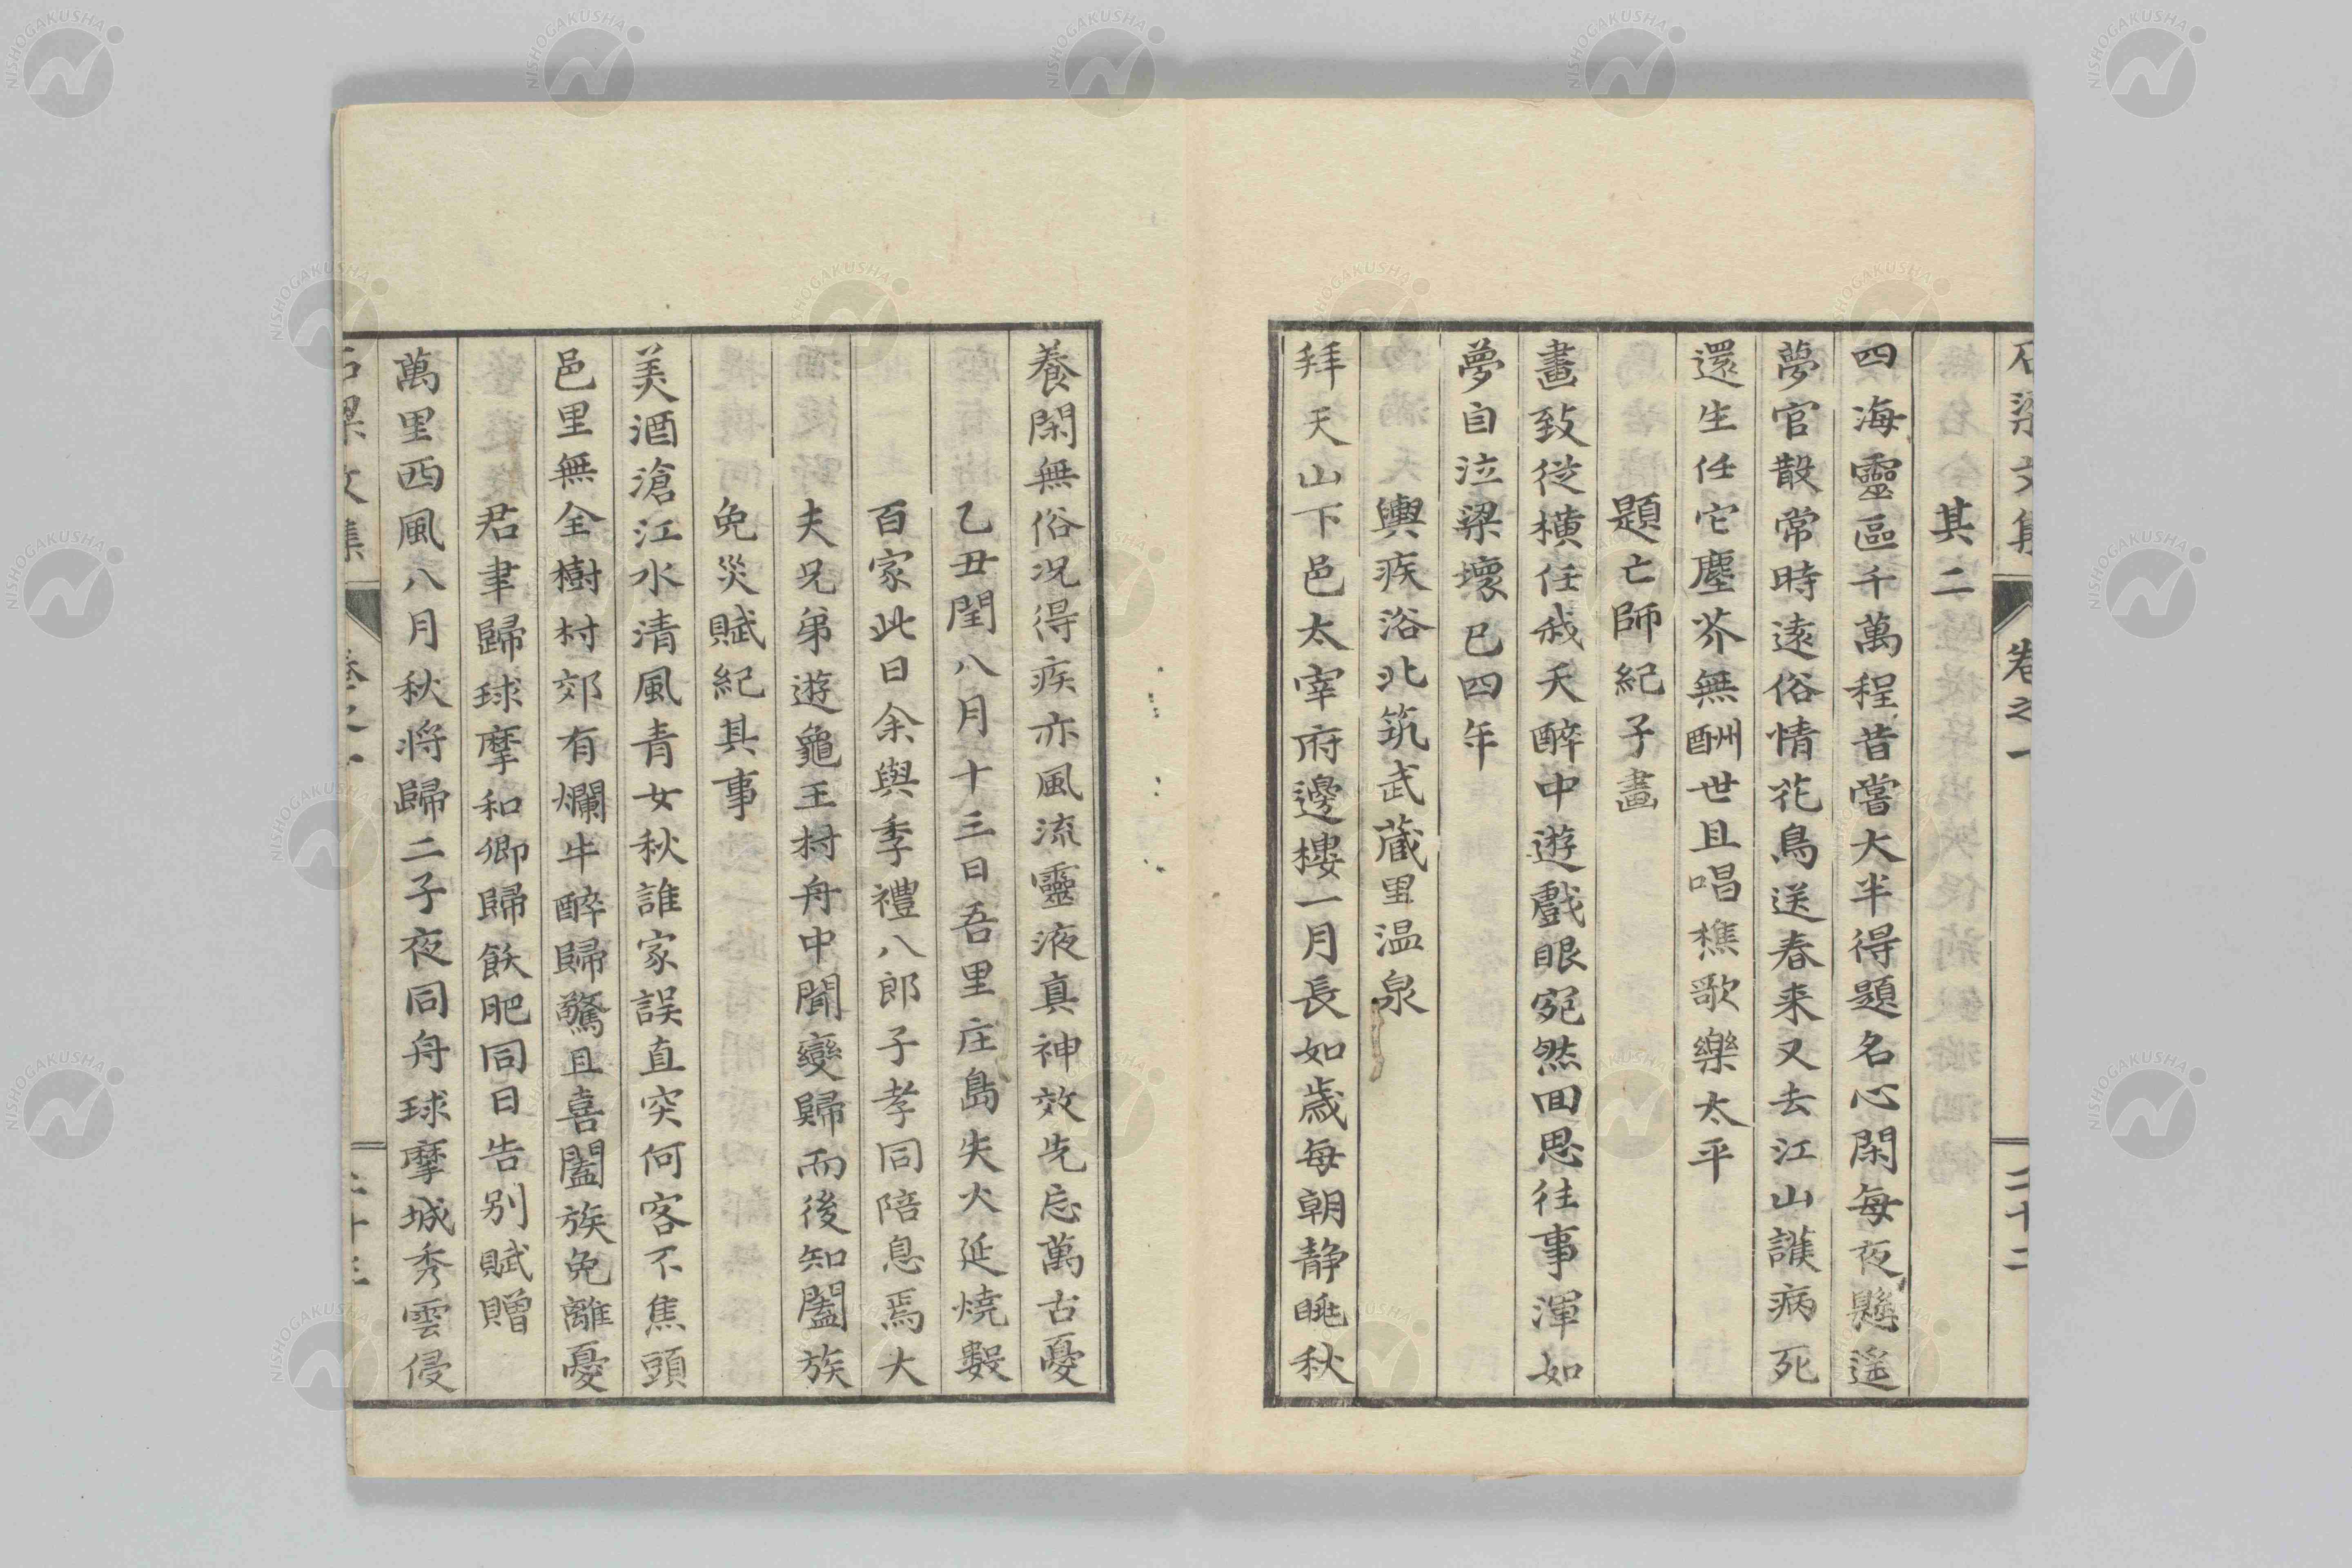 石梁文集 卷之一 二十二
其二
四海靈區千萬程昔嘗大半得題名心閑每夜懸遙
夢官散常時遠俗情花鳥送春来又去江山護病死
還生任它塵芥無酬世且唱樵歌樂太平
題亡師紀子畫
畫致從横任我夭醉中遊戲眼宛然回思往事渾如
夢自泣梁壞已四年
輿疾浴北筑武蔵里温泉
拜天山下邑太宰府邊樓一月長如歳每朝静眺秋
養閑無俗况得疾亦風流靈液真神效先忘萬古憂
乙丑閏八月十三日吾里庄島失火延燒數
百家此日余與季禮八郎子孝同陪息焉大
夫兄弟遊龜王村舟中聞變歸而後知闔族
免災賦紀其事
美酒滄江水清風青女秋誰家誤直突何客不焦頭
邑里無全樹村郊有爛牛醉歸驚且喜闔族免離憂
君聿歸球摩和卿歸飫肥同日告別賦贈
萬里西風八月秋将歸二子夜同舟球摩城秀雲侵
石梁文集 卷之一 二十三
NISHOGAKUSHA